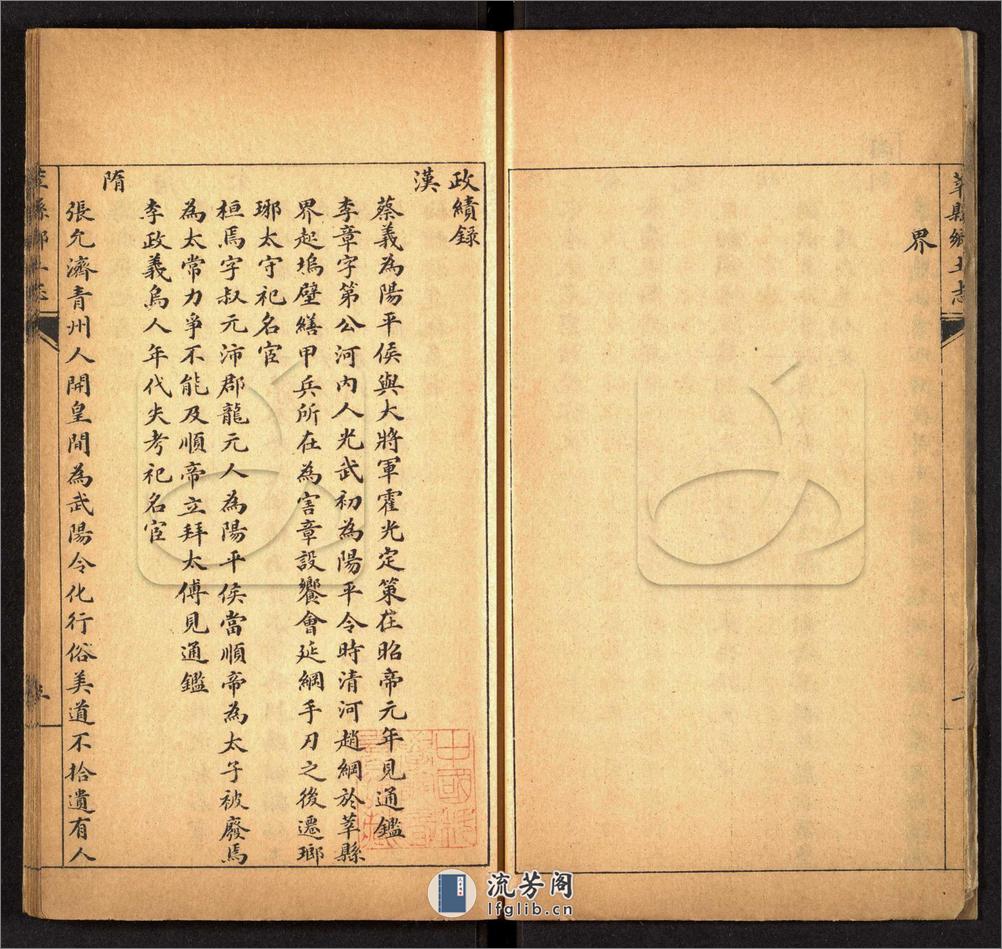 莘縣鄉土志
界
一
政績錄
漢
蔡義為陽平侯與大將軍霍光定策在昭帝元年見通鑑
李章字第公河內人光武初為陽平令時清河趙綱於莘縣
界起塢壁繕甲兵所在為害章設饗會延綱手刃之後遷瑯
琊太守祀名宦
桓焉字叔元沛郡龍元人為陽平侯當順帝為太子被廢焉
為太常力爭不能及順帝立拜太傅見通鑑
李政義烏人年代失考祀名宦
隋
張允濟青州人開皇間為武陽令化行俗美道不拾遺有人
流芳阁
lfglib.cn